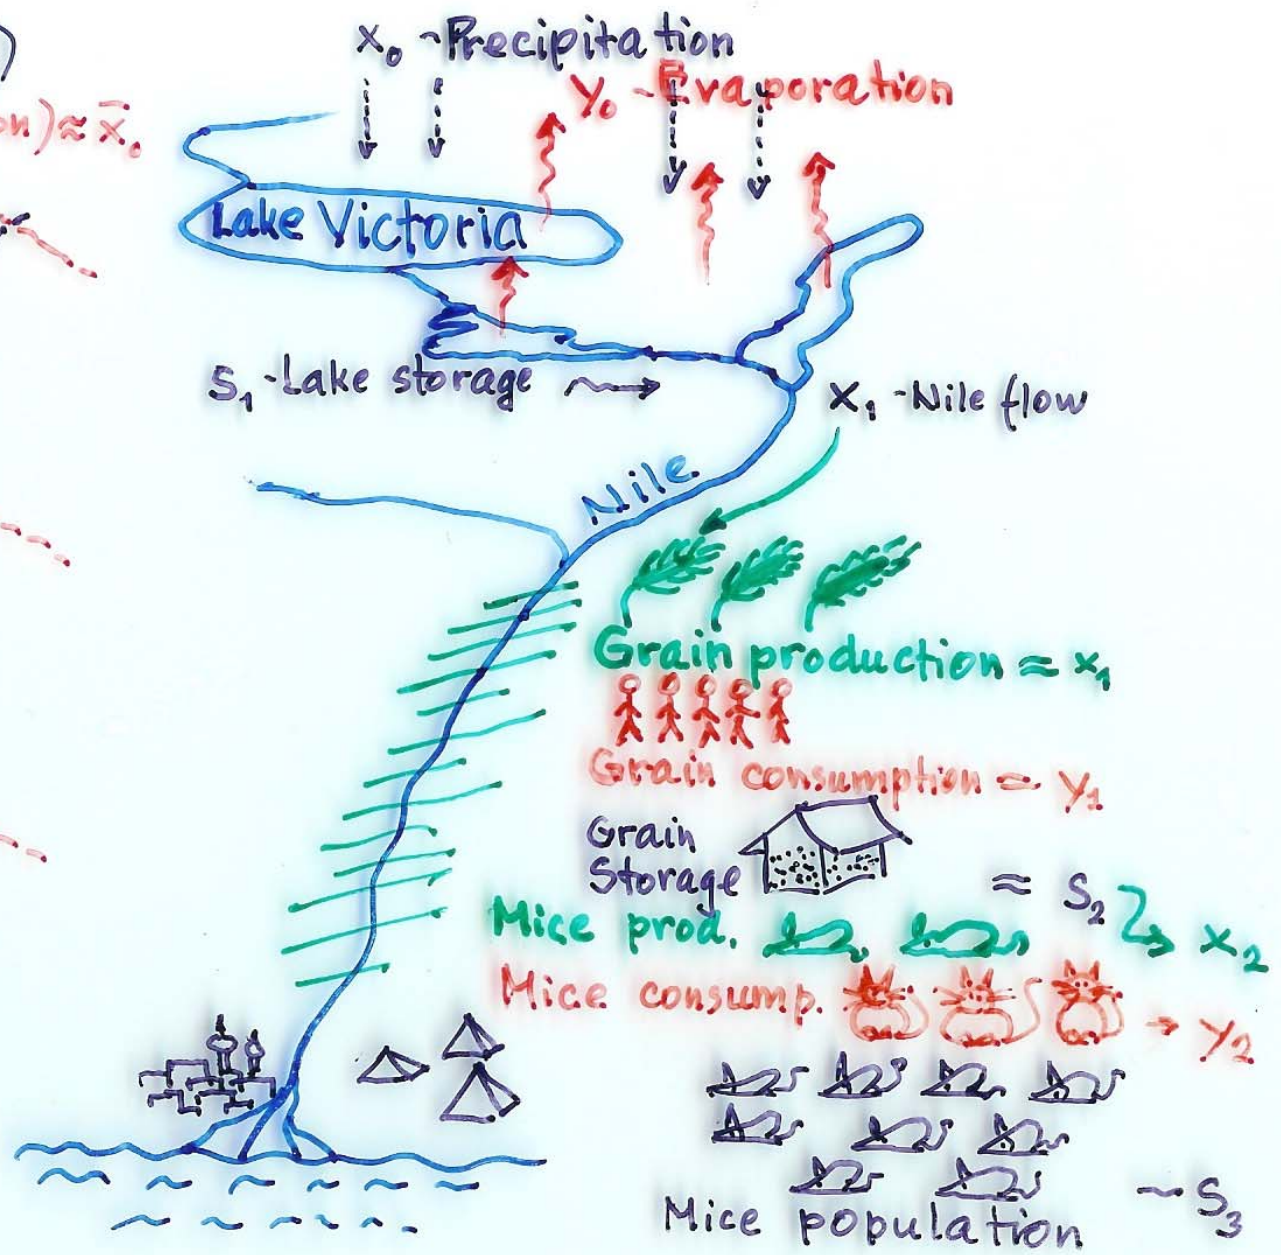 )
x₀ ~ Precipitation
y₀ ~ Evaporation
on) ≈ x̄₀
Lake Victoria
S₁ - Lake storage
x₁ - Nile flow
Nile
Grain production ≈ x₁
Grain consumption ≈ y₁
Grain
Storage ≈ S₂
Mice prod. x₂
Mice consump. → y₂
Mice population ~ S₃